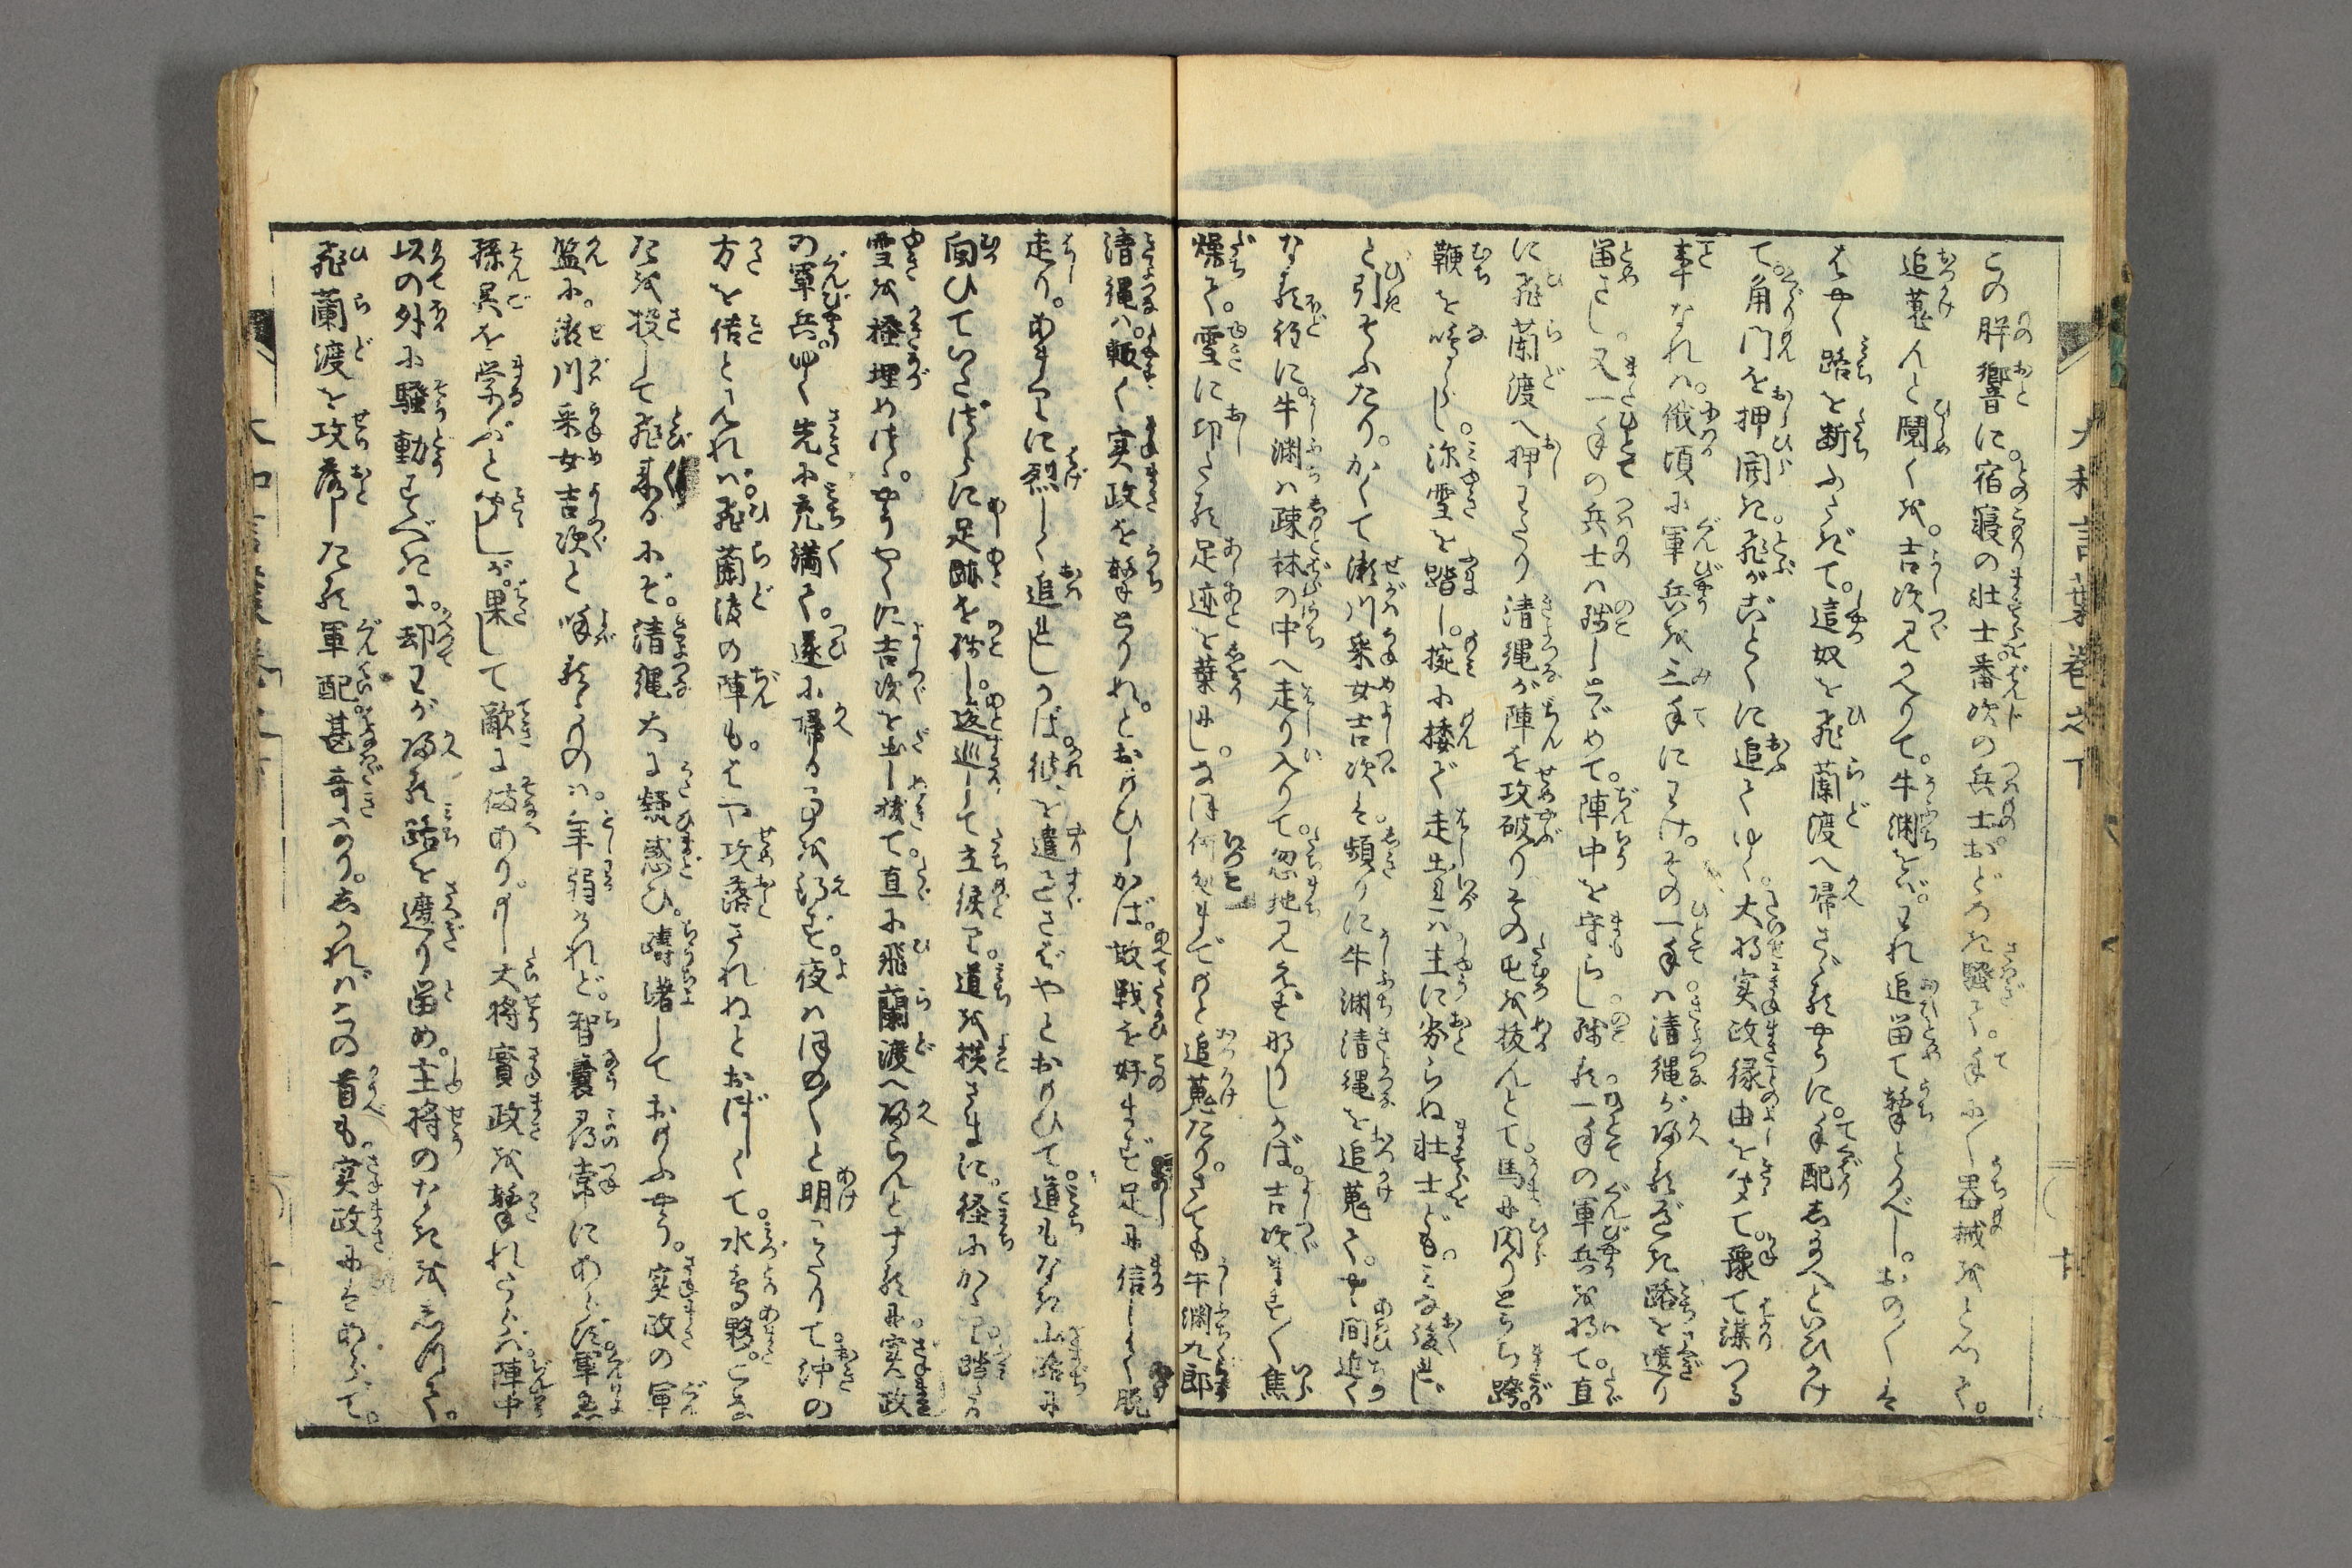 この胖響に。宿寝の壮士番次の兵士。おどろき騒ぎて。手に〳〵器械をとつて。
追蒐んと鬩くを。吉次見かへりて。牛渕をば。われ追留て撃とるべし。おの〳〵は
はやく路を断ふさぎて。這奴を飛蘭渡へ帰さゞるやうに。手配し給へといひかけ
て。角門を押開き。飛がごとくに追てゆく。大将実政縁由を聞て。豫て謀つる
事なれば。俄頃に軍兵を三手にわけ。その一手は清縄が帰るべき路を遮り
留さし。又一手の兵士は残しとゞめて。陣中を守らし。残る一手の軍兵を将て。直
に飛蘭渡へ押わたり清縄が陣を攻破りその屯を抜んとて。馬に閃りとうち跨。
鞭を鳴らし。深雪を踏し。掟に捷で走出れば主に劣らぬ壮士ども。みな後れじ
と引そふたり。かくて瀬川采女吉次は。頻りに牛渕清縄を追蒐て。やゝ間近く
なる程に。牛渕は疎林の中へ走り入りて。忽地見えずなりしかば。吉次ます〳〵焦
燥て。雪に印たる足迹を葉にし。なほ何処までもと追蒐たり。さても牛渕九郎
清縄は。輙く実政を撃とりれ。とおもひしかば。敢戦を好まず足に信して脱
走り。あまりに烈しく追れしかば。彼を遣過さばやとおもひて。道もなき山路に
向ひていたづらに足跡を残し。逡巡して立候り。道を横さまに。径にかゝり踏たる
雪を掻埋めつゝ。やうやくに吉次を出し抜て。直に飛蘭渡へ帰らんとするに。実政
の軍兵。ゆく先に充満て。遂に帰る事を得ず。夜はほの〴〵と明わたりて。沖の
方を信と見れば。飛蘭渡の陣も。はや攻落されぬとおぼしくて。水鳥夥。こな
たを投して飛来るにぞ。清縄大に疑惑ひ。躊躇しておもふやう。実政の軍
監に。瀬川采女吉次と呼るゝものは。年弱けれど。智嚢尋常にあらず。軍慮
孫呉を学ぶと聞しが。果して敵に備あり。もし大将實政を撃れたらば。陣中
以の外に騒動すべきに。却わが帰る路を遮り留め。主将のなきを恙げて。
飛蘭渡を攻落したる軍配。甚奇なり。しかればこの首も実政にはあらで。
大和言葉巻之下